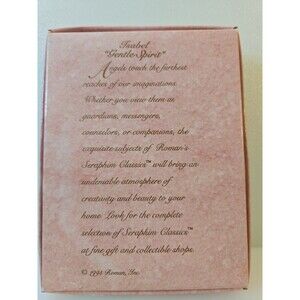 Isabel
"Gentle Spirit"
Angels touch the furthest
reaches of our imaginations.
Whether you view them as
guardians, messengers,
counselors, or companions, the
exquisite subjects of Roman's
Seraphim Classics™ will bring an
undeniable atmosphere of
creativity and beauty to your
home. Look for the complete
selection of Seraphim Classics™
at fine gift and collectible shops.
© 1994 Roman, Inc.